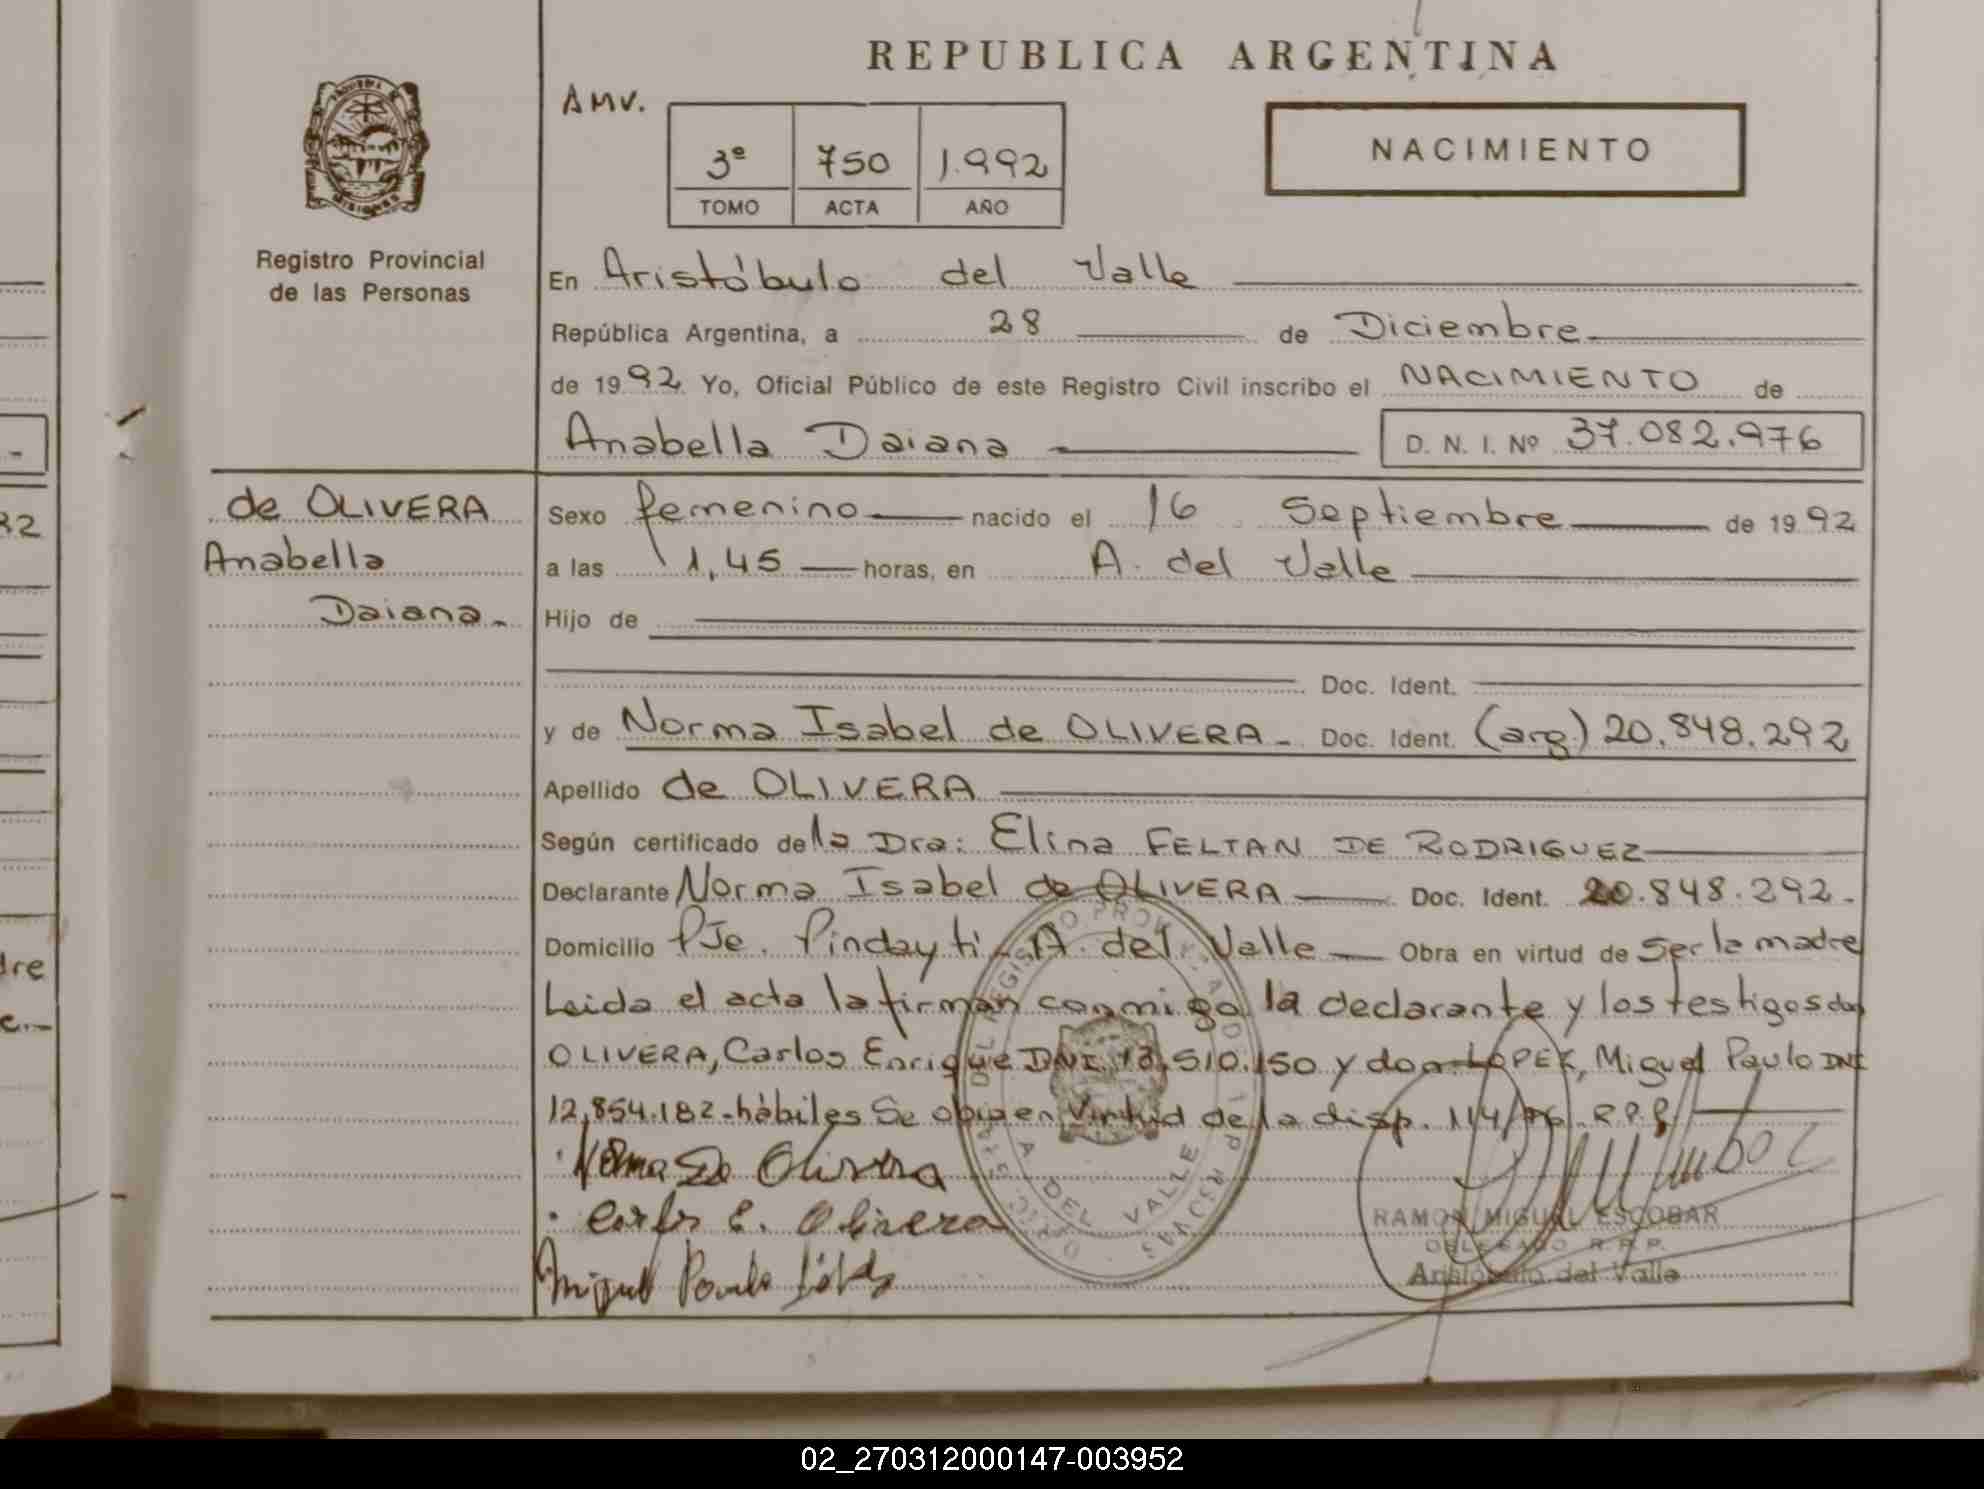 REPUBLICA ARGENTINA
AMV.
3º 750 1.992
TOMO ACTA AÑO
NACIMIENTO
MISIONES
Registro Provincial
de las Personas
En Aristóbulo del Valle
República Argentina, a 28 de Diciembre
de 1992 Yo, Oficial Público de este Registro Civil inscribo el NACIMIENTO de
Anabella Daiana D. N. I. Nº 37.082.976
de OLIVERA
Anabella
Daiana.
Sexo femenino nacido el 16 Septiembre de 1992
a las 1,45 horas, en A. del Valle
Hijo de
Doc. Ident.
y de Norma Isabel de OLIVERA - Doc. Ident. (arg.) 20.848.292
Apellido de OLIVERA
Según certificado de la Dra: Elina FELTAN DE RODRIGUEZ
Declarante Norma Isabel de OLIVERA Doc. Ident. 20.848.292.
Domicilio PJe. Pindayti - A. del Valle Obra en virtud de Ser la madre
Leida el acta la firman conmigo la declarante y los testigos don
OLIVERA, Carlos Enrique DNI. 13.510.150 y don LOPEZ, Miguel Paulo DNI
12.854.182 - hábiles Se obra en virtud de la disp. 114/76. R.P.P.
Norma De Olivera
Carlos E. Olivera
Miguel Paulo
A. DEL VALLE
RAMON MIGUEL ESCOBAR
DELEGADO R.P.P.
Aristóbulo del Valle
32
dre
02_270312000147-003952